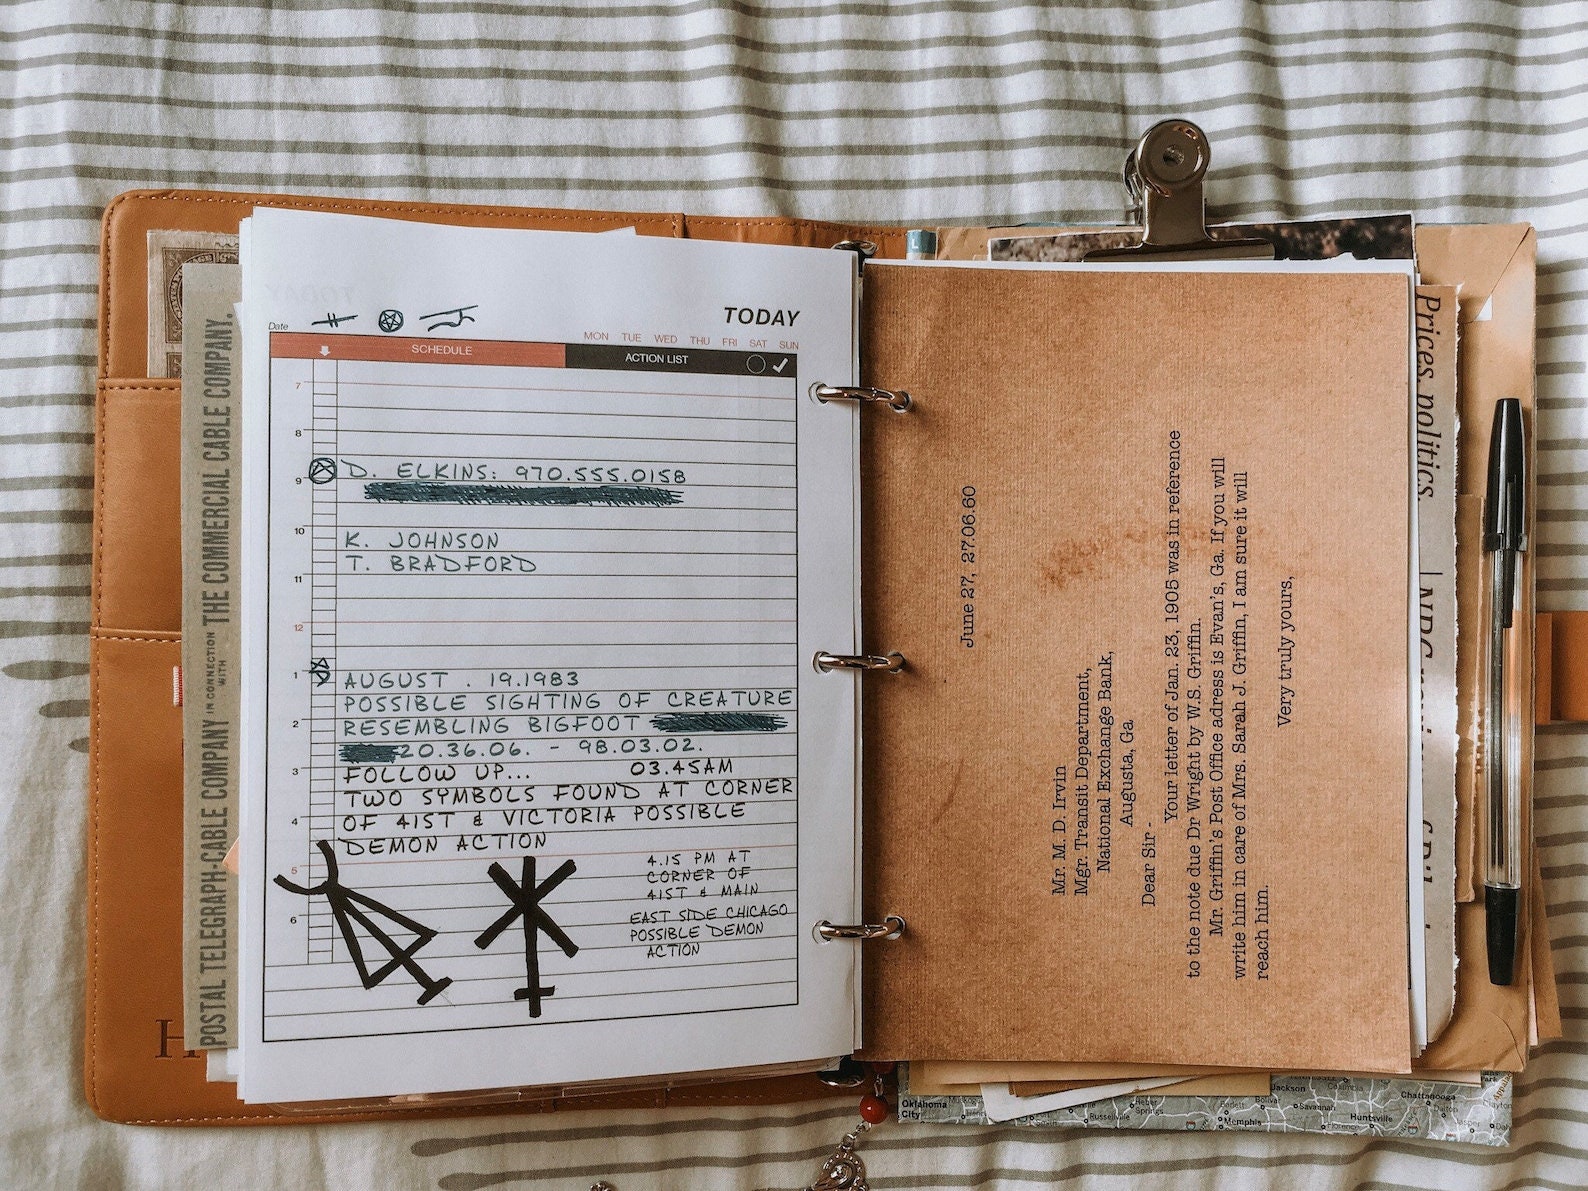 POSTAL TELEGRAPH-CABLE COMPANY IN CONNECTION WITH THE COMMERCIAL CABLE COMPANY.
H
TODAY
Date
MON TUE WED THU FRI SAT SUN
SCHEDULE
ACTION LIST
7
8
D. ELKINS: 970.555.0158
9
10
K. JOHNSON
T. BRADFORD
11
12
1
AUGUST . 19.1983
POSSIBLE SIGHTING OF CREATURE
2
RESEMBLING BIGFOOT
20.36.06. - 98.03.02.
3
FOLLOW UP... 03.45AM
TWO SYMBOLS FOUND AT CORNER
4
OF 41ST & VICTORIA POSSIBLE
DEMON ACTION
5
6
4.15 PM AT
CORNER OF
41ST & MAIN
EAST SIDE CHICAGO
POSSIBLE DEMON
ACTION
L
June 27, 27.06.60
Mr. M. D. Irvin
Mgr. Transit Department,
National Exchange Bank,
Augusta, Ga
Dear Sir -
Your letter of Jan. 23, 1905 was in reference
to the note due Dr Wright by W.S. Griffin.
Mr. Griffin's Post Office adress is Evan's, Ga. If you will
write him in care of Mrs. Sarah J. Griffin, I am sure it will
reach him.
Very truly yours,
Prices, politics
NBC
Oklahoma
City
Heber
Springs
Russellville
Memphis
Bartlett
Bolivar
Jackson
Savannah
Florence
Huntsville
Columbia
Chattanooga
Dalton
Jasper